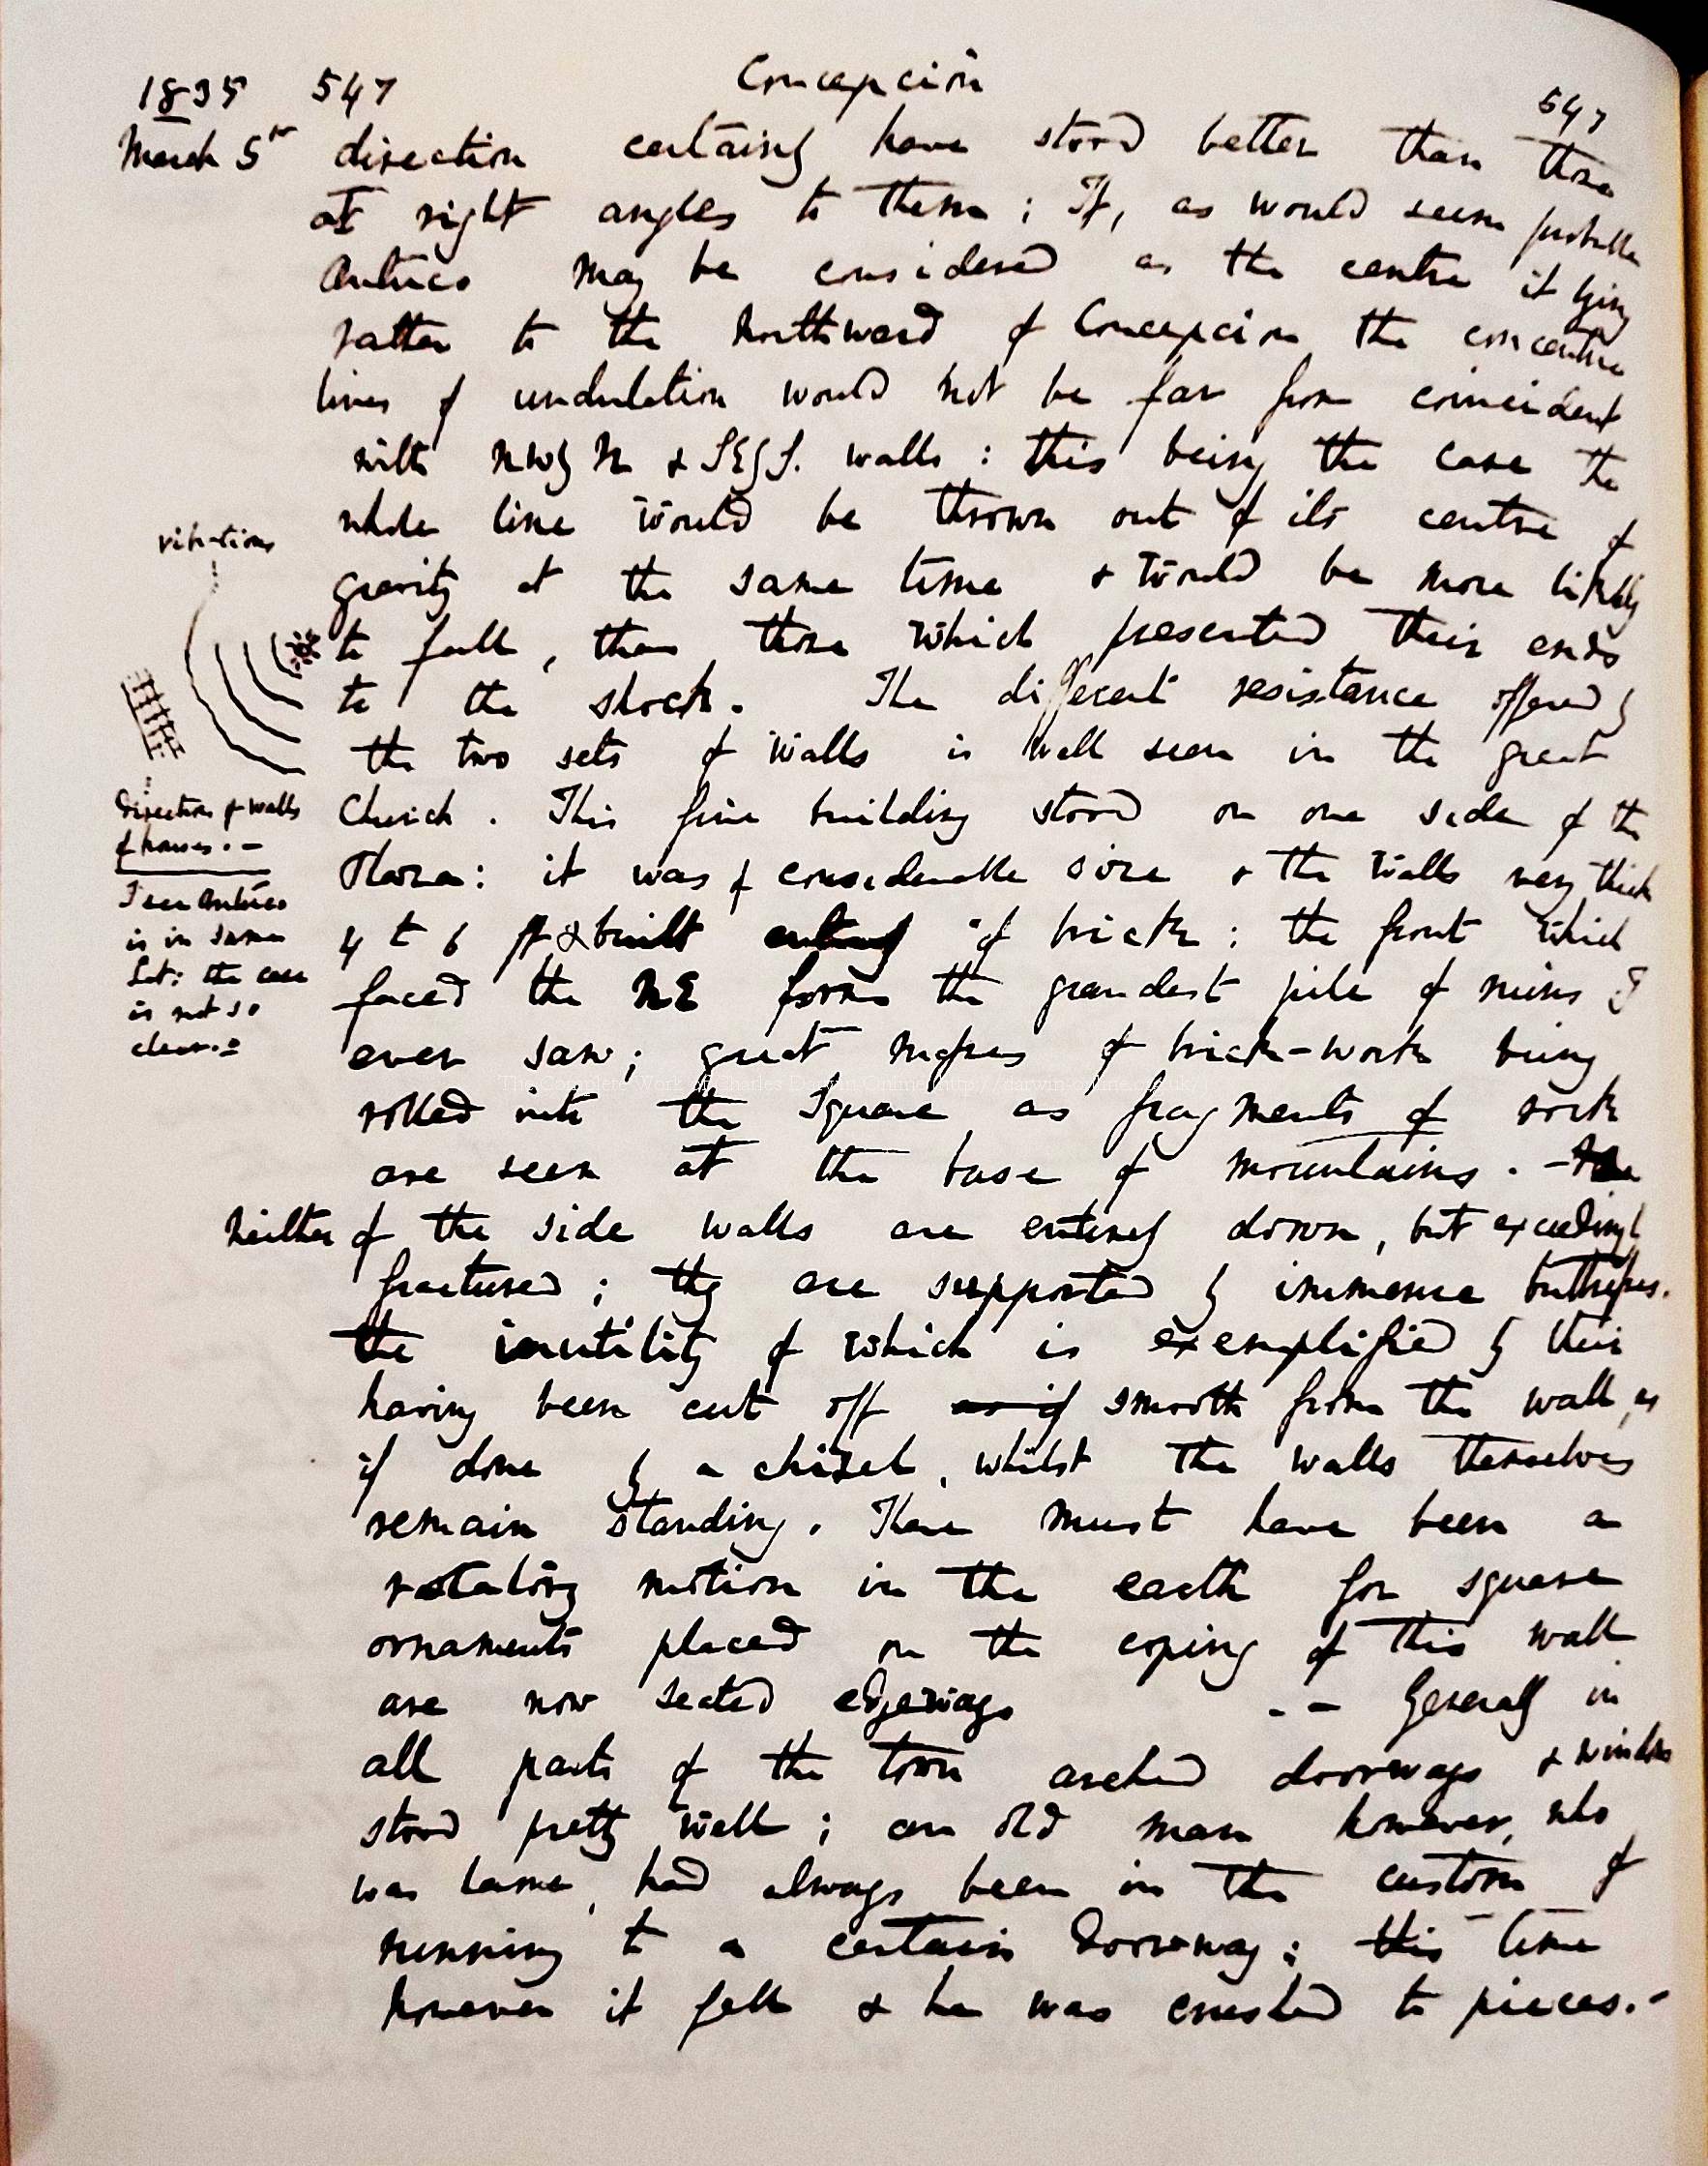 1835 547 Concepcion 547
March 5th direction certainly have stood better than those
at right angles to them; If, as would seem probable
Antuco may be considered as the centre it lying
rather to the Northward of Concepcion the concentric
lines of undulation would not be far from coincident
with NW by N & SE by S. walls: this being the case the
whole line would be thrown out of its centre of
gravity at the same time & would be more likely
to fall, than those which presented their ends
to the shock. The different resistance offered by
the two sets of walls is well seen in the great
Church. This fine building stood on one side of the
Plaza: it was of considerable size & the walls very thick
4 to 6 ft & built entirely of brick: the front which
faced the NE forms the grandest pile of ruins I
ever saw; great masses of brick-work being
rolled into the square as fragments of rock
are seen at the base of mountains. -
Neither of the side walls are entirely down, but exceedingly
fractured; they are supported by immense buttresses.
the inutility of which is exemplified by their
having been cut off as if smooth from the wall, as
if done by a chisel, whilst the walls themselves
remain standing. There must have been a
rotatory motion in the earth for square
ornaments placed on the coping of this wall
are now seated edgeways -- Generally in
all parts of the town arched doorways & windows
stood pretty well; an old man however, who
was lame, had always been in the custom of
running to a certain doorway; this time
however it fell & he was crushed to pieces.-
vibrations
Direction of walls
of houses.-
I see Antuco
is in same
Lat: the case
is not so
clear.=